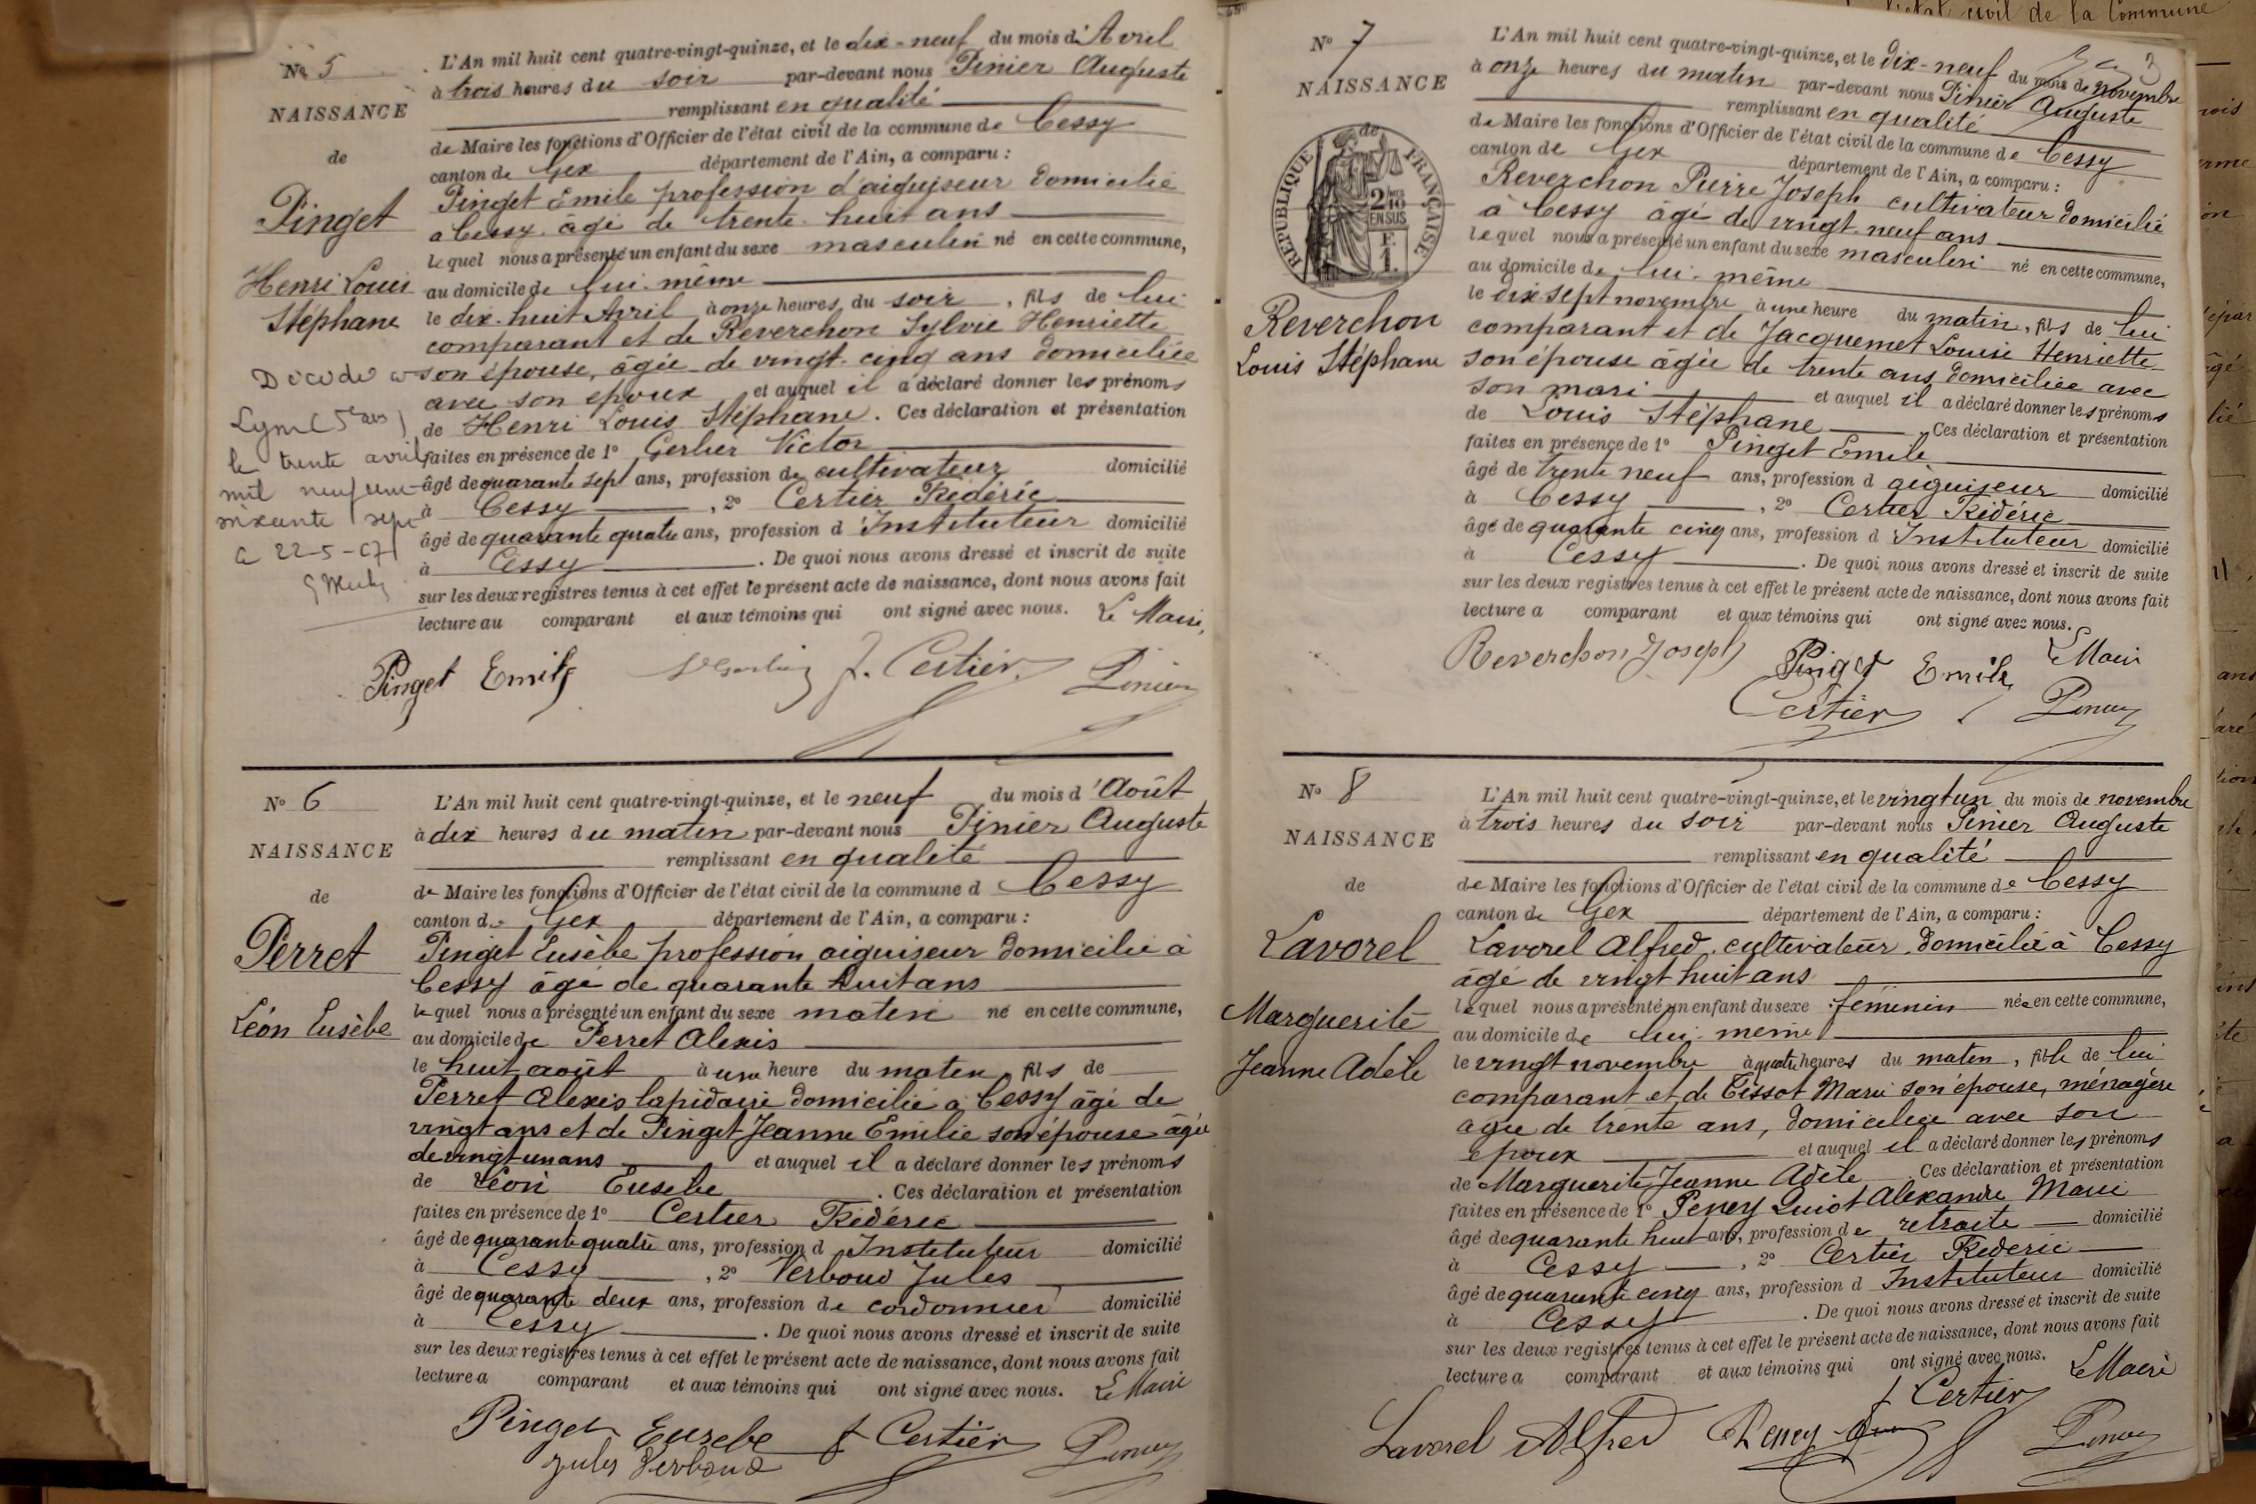 No 5
NAISSANCE
de
Pinget
Henri Louis
Stéphane
Lyon (5e arr)
le trente avril
mil neuf cent
soixante sept
L'An mil huit cent quatre-vingt-quinze, et le dix-neuf du mois d'Avril
à trois heures du soir par-devant nous Pinier Auguste
remplissant en qualité
de Maire les fonctions d'Officier de l'état civil de la commune de Cessy
canton de Gex département de l'Ain, a comparu :
Pinget Emile profession d'aiguiseur domicilié
a Cessy âgé de trente-huit ans
lequel nous a présenté un enfant du sexe masculin né en cette commune,
au domicile de lui-même
le dix-huit Avril à onze heures du soir, fils de lui
comparant et de Reverchon Sylvie Henriette
son épouse, âgée de vingt-cinq ans domiciliée
avec son époux et auquel il a déclaré donner les prénoms
de Henri Louis Stéphane. Ces déclaration et présentation
faites en présence de 1° Gerlier Victor
âgé de quarante sept ans, profession de cultivateur domicilié
à Cessy, 2° Certier Frédéric
âgé de quarante quatre ans, profession d'Instituteur domicilié
à Cessy. De quoi nous avons dressé et inscrit de suite
sur les deux registres tenus à cet effet le présent acte de naissance, dont nous avons fait
lecture au comparant et aux témoins qui ont signé avec nous. Le Maire,
Pinget Emile F. Certier Pinier
No 6
NAISSANCE
de
Perret
Léon Eusèbe
L'An mil huit cent quatre-vingt-quinze, et le neuf du mois d'Août
à dix heures du matin par-devant nous Pinier Auguste
remplissant en qualité
de Maire les fonctions d'Officier de l'état civil de la commune d Cessy
canton de Gex département de l'Ain, a comparu :
Pinget Eusèbe profession aiguiseur domicilié à
Cessy âgé de quarante huit ans
lequel nous a présenté un enfant du sexe matin né en cette commune,
au domicile de Perret Alexis
le huit août à une heure du matin, fils de
Perret Alexis lapidaire domicilié à Cessy âgé de
vingt ans et de Pinget Jeanne Emilie son épouse âgée
de vingt un ans et auquel il a déclaré donner les prénoms
de Léon Eusèbe. Ces déclaration et présentation
faites en présence de 1° Certier Frédéric
âgé de quarante quatre ans, profession d Instituteur domicilié
à Cessy, 2° Verboud Jules
âgé de quarante deux ans, profession de cordonnier domicilié
à Cessy. De quoi nous avons dressé et inscrit de suite
sur les deux registres tenus à cet effet le présent acte de naissance, dont nous avons fait
lecture a comparant et aux témoins qui ont signé avec nous. Le Maire
Pinget Euzebe F Certier Pinier
Jules Verboud
No 7
NAISSANCE
de
RÉPUBLIQUE FRANÇAISE
2/10 EN SUS
F. 1.
Reverchon
Louis Stéphane
L'An mil huit cent quatre-vingt-quinze, et le Dix-neuf du mois de novembre
à onze heures du matin par-devant nous Pinier Auguste
remplissant en qualité
de Maire les fonctions d'Officier de l'état civil de la commune de Cessy
canton de Gex département de l'Ain, a comparu :
Reverchon Pierre Joseph cultivateur domicilié
à Cessy âgé de vingt-neuf ans
lequel nous a présenté un enfant du sexe masculin né en cette commune,
au domicile de lui-même
le dix sept novembre à une heure du matin, fils de lui
comparant et de Jacquemet Louise Henriette
son épouse âgée de trente ans domiciliée avec
son mari et auquel il a déclaré donner les prénoms
de Louis Stéphane. Ces déclaration et présentation
faites en présence de 1° Pinget Emile
âgé de trente neuf ans, profession d aiguiseur domicilié
à Cessy, 2° Certier Frédéric
âgé de quarante cinq ans, profession d Instituteur domicilié
à Cessy. De quoi nous avons dressé et inscrit de suite
sur les deux registres tenus à cet effet le présent acte de naissance, dont nous avons fait
lecture a comparant et aux témoins qui ont signé avec nous.
Le Maire
Reverchon Joseph Pinget Emile
Certier Pinier
No 8
NAISSANCE
de
Lavorel
Marguerite
Jeanne Adèle
L'An mil huit cent quatre-vingt-quinze, et le vingt un du mois de novembre
à trois heures du soir par-devant nous Pinier Auguste
remplissant en qualité
de Maire les fonctions d'Officier de l'état civil de la commune de Cessy
canton de Gex département de l'Ain, a comparu :
Lavorel Alfred cultivateur domicilié à Cessy
âgé de vingt huit ans
lequel nous a présenté un enfant du sexe féminin née en cette commune,
au domicile de lui-même
le vingt novembre à quatre heures du matin, fille de lui
comparant et de Tissot Marie son épouse, ménagère
agée de trente ans, domiciliée avec son
époux et auquel il a déclaré donner les prénoms
de Marguerite Jeanne Adèle. Ces déclaration et présentation
faites en présence de 1° Peney Quiot Alexandre Marie
âgé de quarante huit ans, profession de retraité domicilié
à Cessy, 2° Certier Frédéric
âgé de quarante cinq ans, profession d Instituteur domicilié
à Cessy. De quoi nous avons dressé et inscrit de suite
sur les deux registres tenus à cet effet le présent acte de naissance, dont nous avons fait
lecture a comparant et aux témoins qui ont signé avec nous. Le Maire
Certier
Lavorel Alfred Peney Pinier
état civil de la Commune